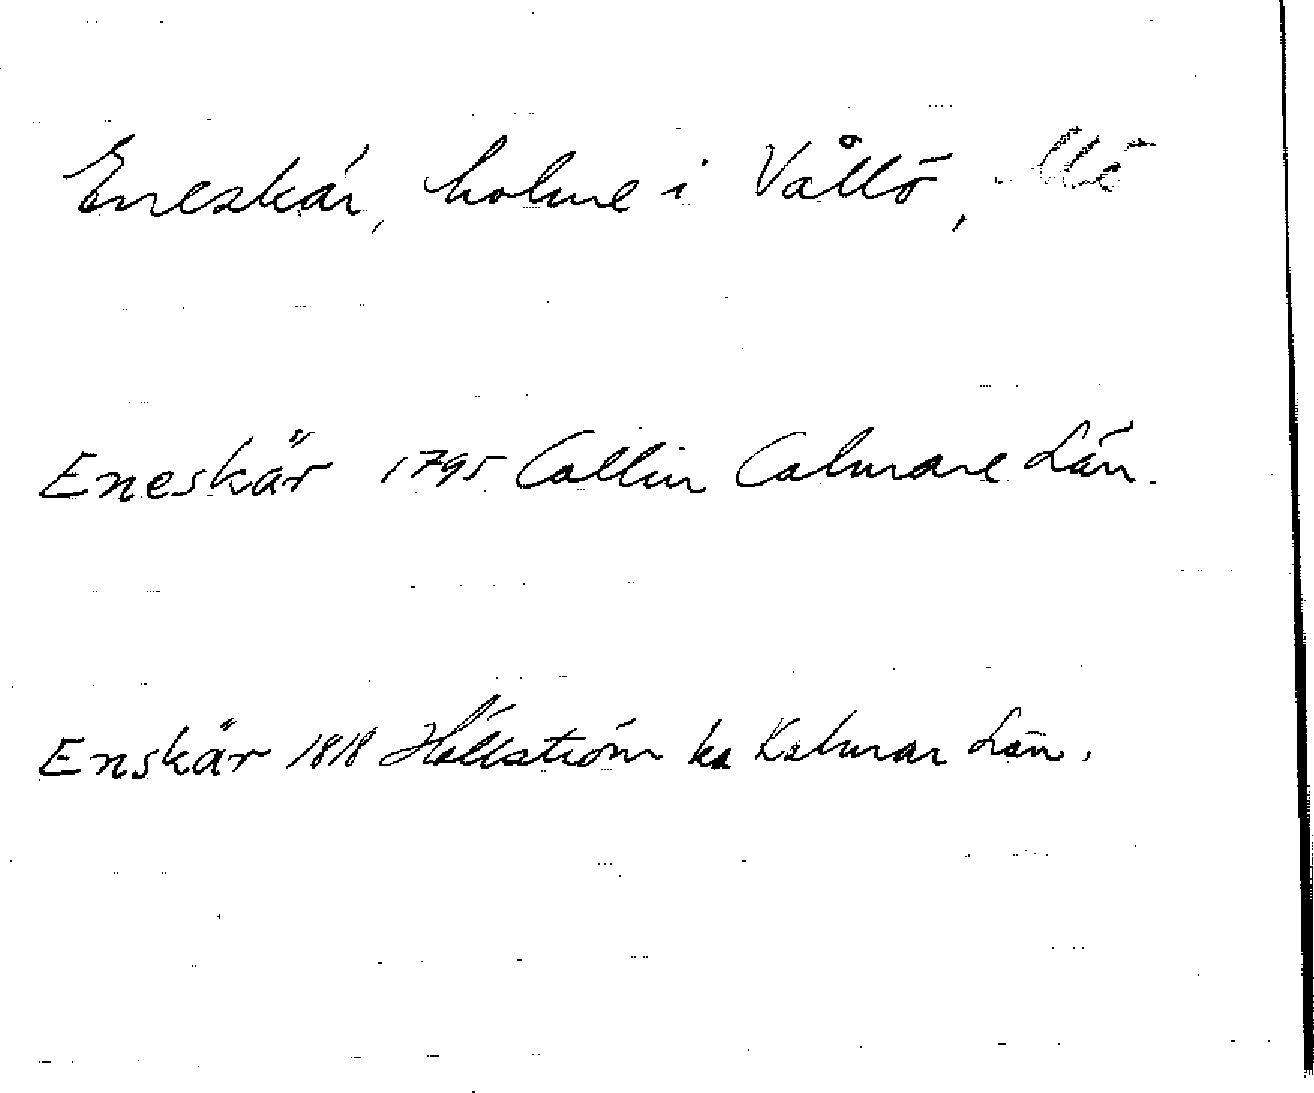 Eneskär, holme i Vållö,
Eneskär 1795 Collin Calmare Län.
Enskär 1818 Hällström ka Kalmar Län.